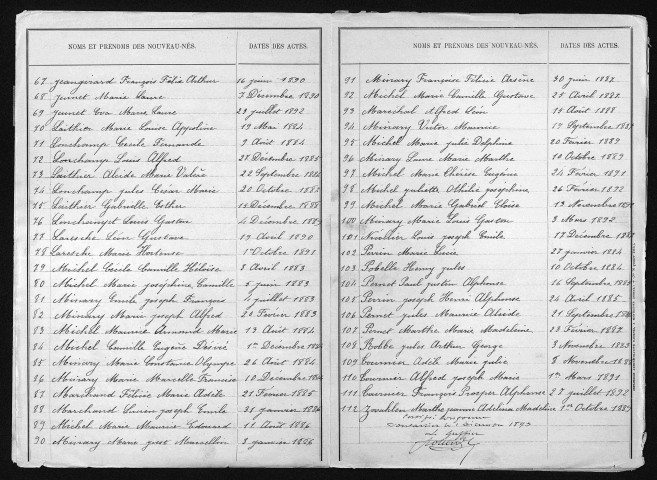 NOMS ET PRENOMS DES NOUVEAU-NÉS. DATES DES ACTES.
67 Jeangirard François Félix Arthur 16 juin 1890
68 Jeunet Marie Laure 7 Décembre 1890
69 Jeunet Eva Marie Laure 29 juillet 1892
70 Laithier Marie Louise Appoline 19 Mai 1884
71 Lonchamp Cécile Fernande 9 Août 1884
72 Lonchamp Louis Alfred 28 Décembre 1885
73 Laithier Alcide Marie Valère 22 Septembre 1886
74 Lonchamp Jules César Marie 20 Octobre 1888
75 Laithier Gabrielle Esther 14 Décembre 1888
76 Lonchampt Louis Gaston 4 Décembre 1889
77 Laresche Léon Gustave 19 Avril 1890
78 Laresche Marie Hortense 1er Octobre 1891
79 Michel Cécile Camille Héloïse 8 Avril 1883
80 Michel Marie joséphine Camille 5 juin 1883
81 Minary Emile joseph François juillet 1883
82 Minary Marie joseph Alfred 21 Février 1883
83 Michel Maurice Armand Marie 13 Août 1884
84 Michel Camille Eugène Désiré 1er Décembre
85 Minary Marie Constance Olympe 26 Août 1884
86 Minary Marie Marcelle Francise 10 Décembre
87 Marchand Félicie Marie Adèle 21 Février 1885
88 Marchand Lucien joseph Emile 31 janvier 1886
89 Michel Marie Maurice Edouard 11 Août 1886
90 Minary Marie just Marcellin 3 janvier 1886
NOMS ET PRENOMS DES NOUVEAU-NÉS. DATES DES ACTES.
91 Minary Françoise Félicie Arsène 30 juin 1887
92 Michel Marie Camille Gustave 28 Avril 1887
93 Maréchal Alfred Léon 14 Août 1888
94 Minary Victor Maurice 19 Septembre
95 Michel Marie julie Delphine 20 Février 1889
96 Minary Laure Marie Marthe 10 Octobre 1889
97 Michel Marie Thérèse Eugénie 24 Février 1891
98 Michel juliette Othilie joséphine 26 Février 1892
99 Michel Marie Gabriel Eloïse 13 Novembre
100 Minary Marie Louis Gaston 3 Mars 1892
101 Nicolier Louis joseph Emile 17 Décembre
102 Perrin Marie Lucie 27 janvier 1884
103 Pobelle Henry jules 10 Octobre 1884
104 Pernet Paul justin Alphonse 16 Septembre
105 Perrin joseph Henri Alphonse 24 Avril 1885
106 Pernet jules Maurice Alcide 21 Septembre
107 Pernet Marthe Marie Madeleine 23 Février 1887
108 Robbe jules Arthur George 3 Novembre 1883
109 Tournier Adèle Marie julie 8 Novembre
110 Tournier Alfred joseph Marie 1er Mars 1891
111 Tournier François Prosper Alphonse 27 juillet 1892
112 Marthe jeanne Adelina Madeleine 1er Octobre 1889
1893
Le Greffier